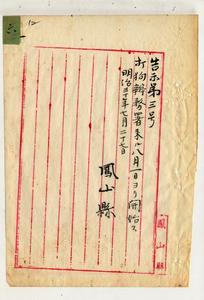 告示第三号
打狗辨務署来ル八月一日ヨリ開始ス
明治三十年七月二十七日
鳳山縣
鳳山縣